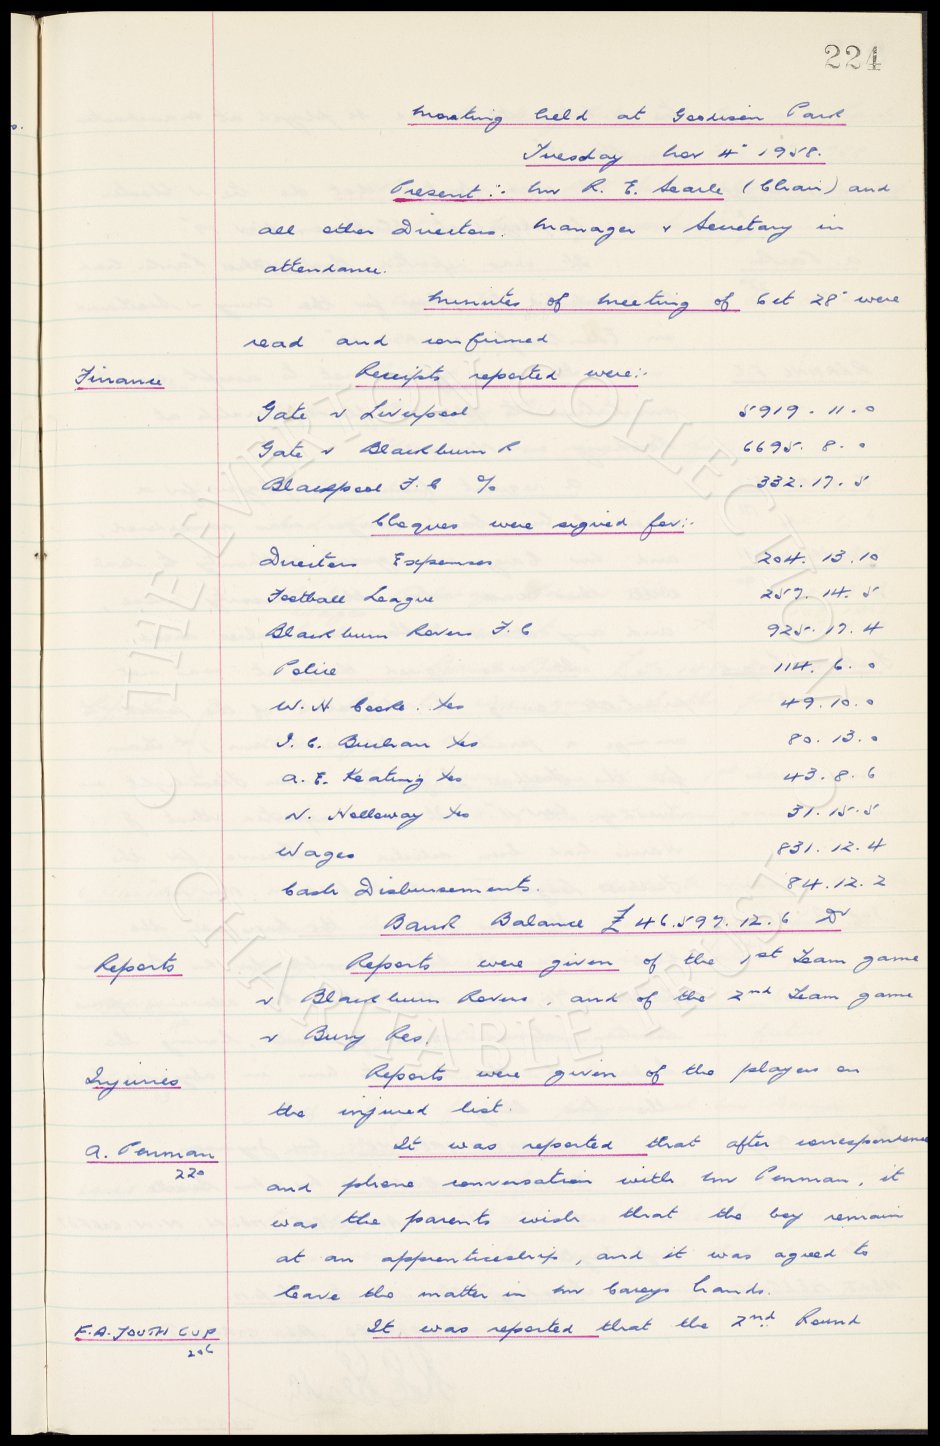 224
Meeting held at Goodison Park
Tuesday Nov 4" 1958.
Present:- Mr R. E. Searle (Chair) and
all other Directors. Manager & Secretary in
attendance.
Minutes of meeting of Oct 28" were
read and confirmed
Finance
Receipts reported were:-
Gate v Liverpool 5919. 11. 0
Gate v Blackburn R 6695. 8. 0
Blackpool F.C % 332. 17. 5
Cheques were signed for:-
Directors Expenses 204. 13. 10
Football League 257. 14. 5
Blackburn Rovers F.C 925. 17. 4
Police 114. 6. 0
W. H Cooke. Xes 49. 10. 0
I. C. Buchan Xes 80. 13. 0
A. E. Keating Xes 43. 8. 6
N. Holloway Xes 31. 15. 5
Wages 831. 12. 4
Cash Disbursements. 84. 12. 2
Bank Balance £46.597. 12. 6 Dr
Reports
Reports were given of the 1st Team game
v Blackburn Rovers, and of the 2nd Team game
v Bury Res.
Injuries
Reports were given of the players on
the injured list.
A. Penman
220
It was reported that after correspondence
and phone conversation with Mr Penman, it
was the parents wish that the boy remain
at an apprenticeship, and it was agreed to
leave the matter in Mr Careys hands.
F.A. YOUTH CUP
206
It was reported that the 2nd Round
THE EVERTON COLLECTION
CHARITABLE TRUST